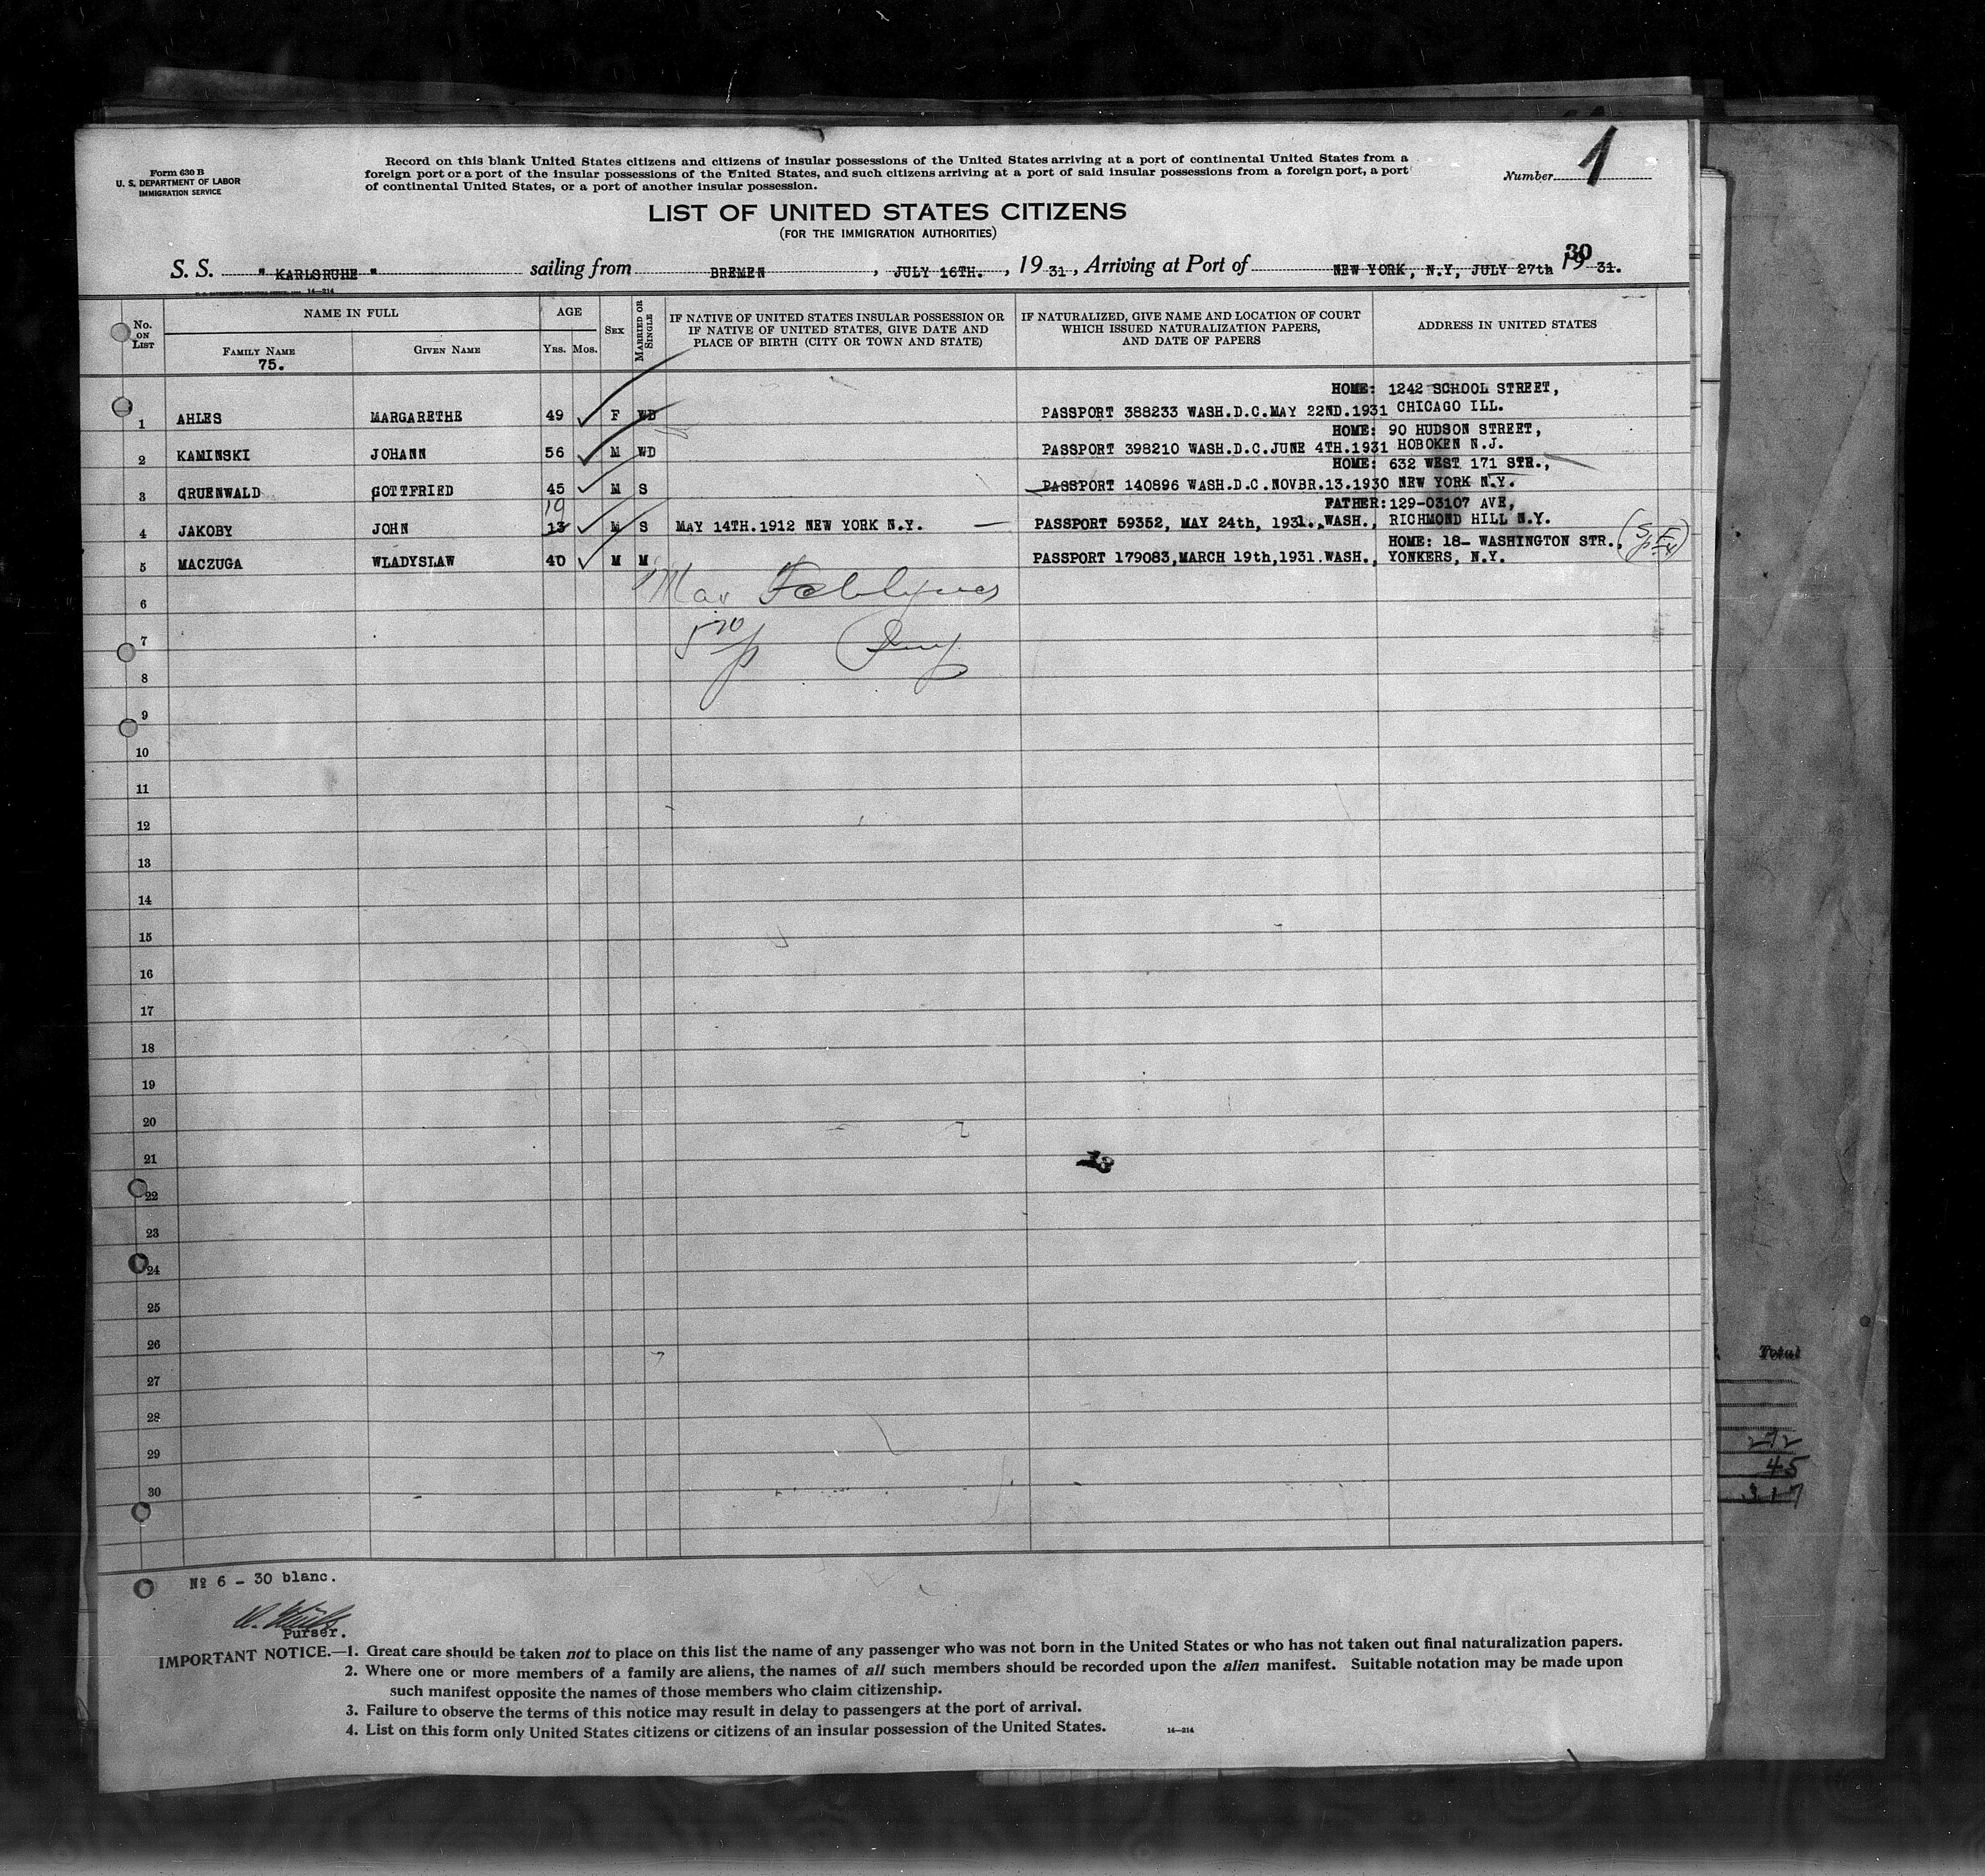 Form 630 B
U. S. DEPARTMENT OF LABOR
IMMIGRATION SERVICE
Record on this blank United States citizens and citizens of insular possessions of the United States arriving at a port of continental United States from a
foreign port or a port of the insular possessions of the United States, and such citizens arriving at a port of said insular possessions from a foreign port, a port
of continental United States, or a port of another insular possession.
Number 1
LIST OF UNITED STATES CITIZENS
(FOR THE IMMIGRATION AUTHORITIES)
30
S. S. " KARLSRUHE " sailing from BREMEN , JULY 16TH. , 19 31 , Arriving at Port of NEW YORK, N.Y, JULY 27th 19 31.
14—214
No. ON LIST
NAME IN FULL
FAMILY NAME
75.
GIVEN NAME
AGE
YRS. MOS.
SEX
MARRIED OR SINGLE
IF NATIVE OF UNITED STATES INSULAR POSSESSION OR
IF NATIVE OF UNITED STATES, GIVE DATE AND
PLACE OF BIRTH (CITY OR TOWN AND STATE)
IF NATURALIZED, GIVE NAME AND LOCATION OF COURT
WHICH ISSUED NATURALIZATION PAPERS,
AND DATE OF PAPERS
ADDRESS IN UNITED STATES
HOME: 1242 SCHOOL STREET,
1 AHLES MARGARETHE 49 F WD PASSPORT 388233 WASH.D.C.MAY 22ND.1931 CHICAGO ILL.
HOME: 90 HUDSON STREET,
2 KAMINSKI JOHANN 56 M WD PASSPORT 398210 WASH.D.C.JUNE 4TH.1931 HOBOKEN N.J.
HOME: 632 WEST 171 STR.,
3 GRUENWALD GOTTFRIED 45 M S PASSPORT 140896 WASH.D.C.NOVBR.13.1930 NEW YORK N.Y.
19 FATHER: 129-03107 AVE,
4 JAKOBY JOHN 13 M S MAY 14TH.1912 NEW YORK N.Y. — PASSPORT 59352, MAY 24th, 1931.,WASH., RICHMOND HILL N.Y.
HOME: 18- WASHINGTON STR.,
5 MACZUGA WLADYSLAW 40 M M PASSPORT 179083,MARCH 19th,1931.WASH., YONKERS, N.Y.
6
7
8
9
10
11
12
13
14
15
16
17
18
19
20
21
22
23
24
25
26
27
28
29
30
Total
272
45
317
№ 6 - 30 blanc.
Purser.
IMPORTANT NOTICE.—1. Great care should be taken not to place on this list the name of any passenger who was not born in the United States or who has not taken out final naturalization papers.
2. Where one or more members of a family are aliens, the names of all such members should be recorded upon the alien manifest. Suitable notation may be made upon
such manifest opposite the names of those members who claim citizenship.
3. Failure to observe the terms of this notice may result in delay to passengers at the port of arrival.
4. List on this form only United States citizens or citizens of an insular possession of the United States.
14—214